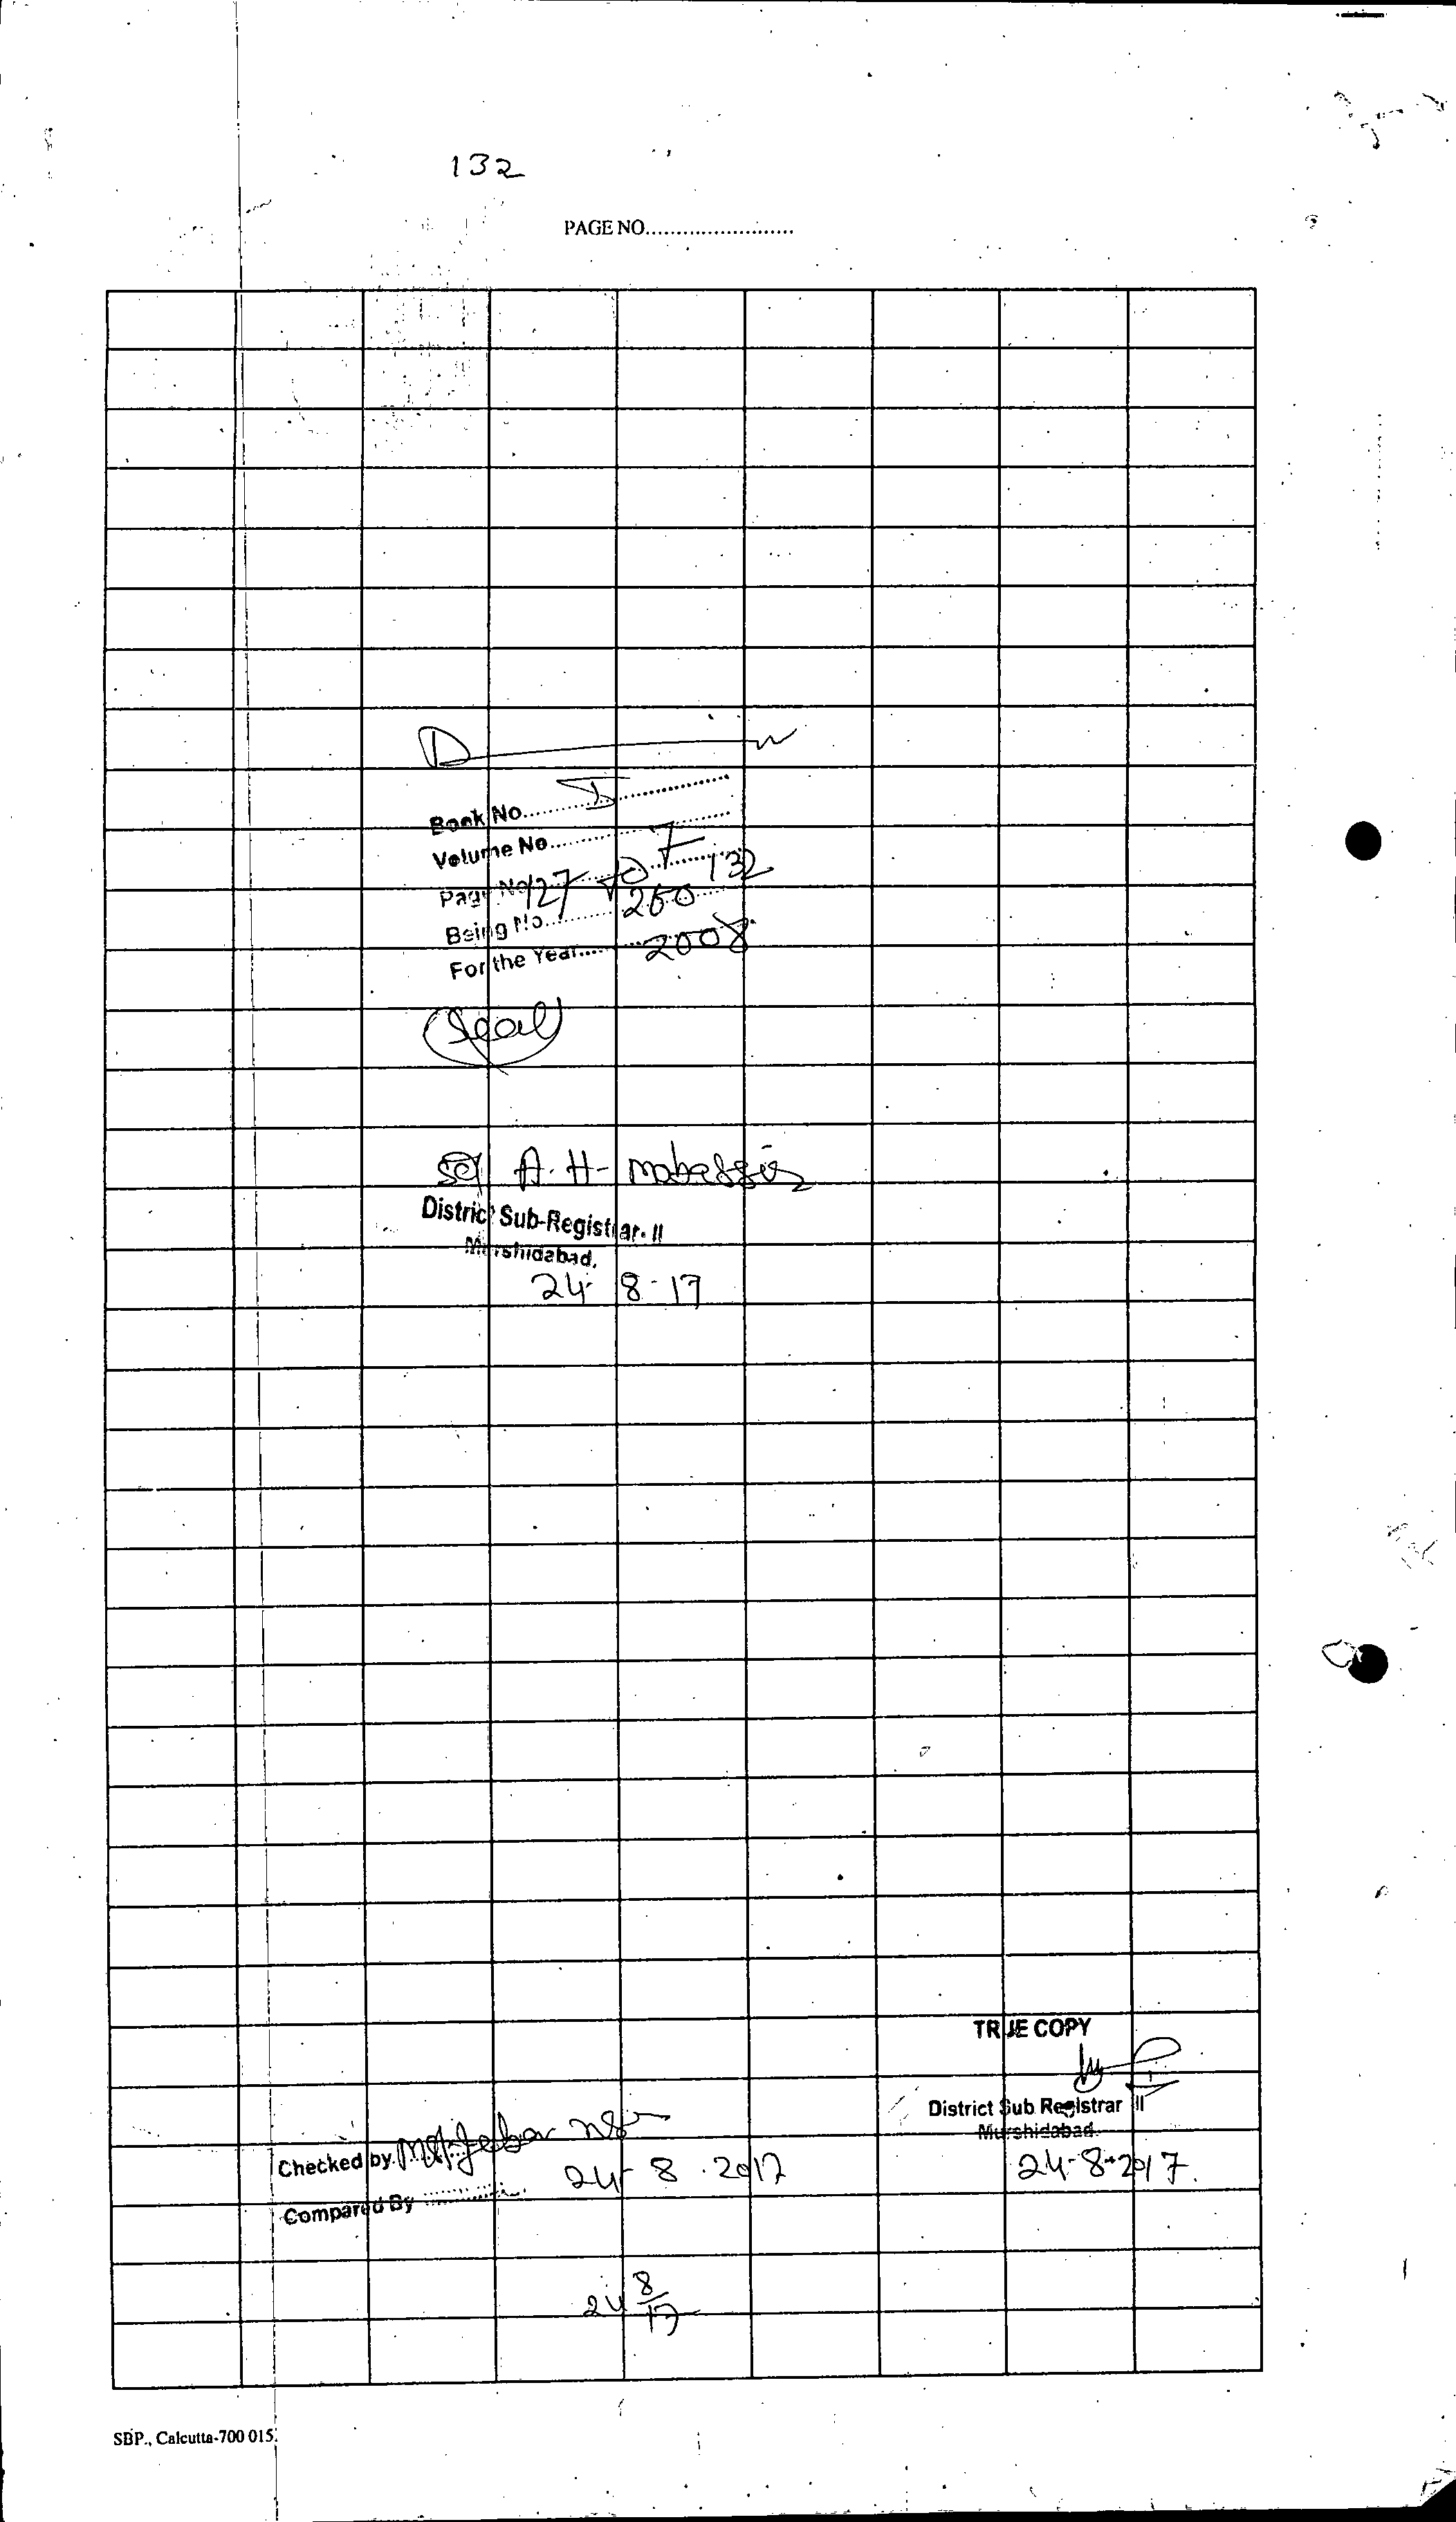 132
PAGE NO........................
Book No. I
Volume No. 7
Page No. 127 to 132
Being No. 260
For the Year 2008
(Seal)
Sd/ A. H.
District Sub-Registrar-II
Murshidabad.
24-8-17
TRUE COPY
District Sub Registrar II
Murshidabad
24-8-2017.
Checked by
24-8.2017
Compared By
24 8/17
SBP., Calcutta-700 015.